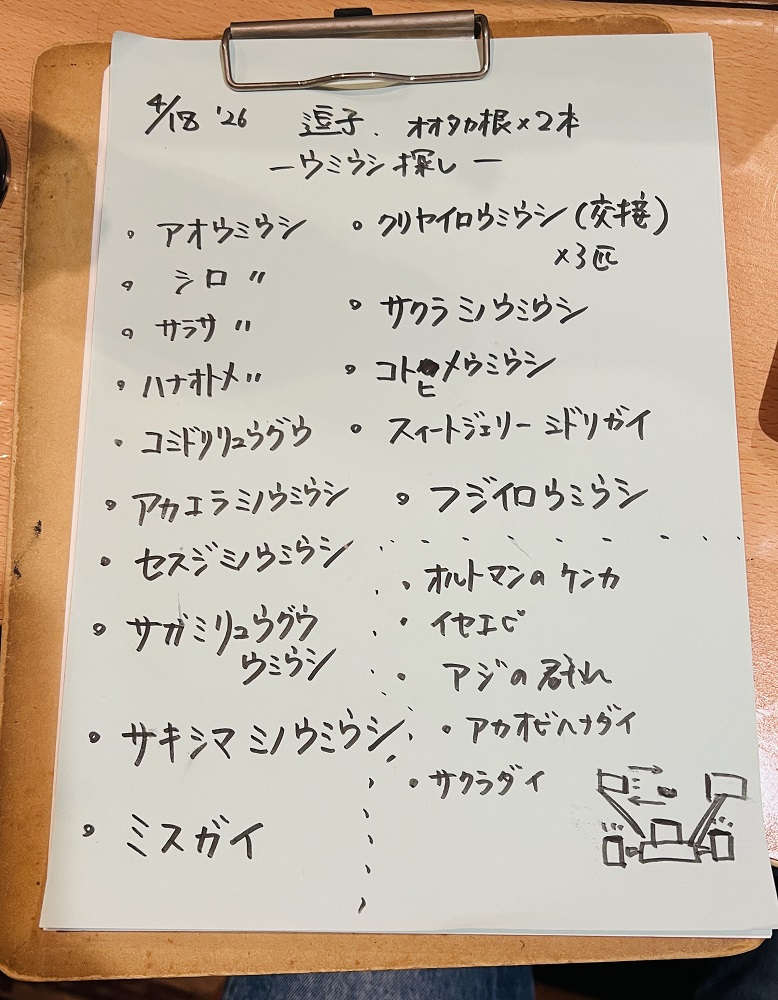 4/18 '26 逗子. オオタカ根×2本
ーウミウシ探しー
・アオウミウシ
・シロ 〃
・サラサ 〃
・ハナオトメ 〃
・コミドリリュウグウ
・アカエラミノウミウシ
・セスジミノウミウシ
・サガミリュウグウ
ウミウシ
・サキシマミノウミウシ
・ミスガイ
・クリヤイロウミウシ(交接)
×3匹
・サクラミノウミウシ
・コトヒメウミウシ
・スイートジェリーミドリガイ
・フジイロウミウシ
・オルトマンのケンカ
・イセエビ
・アジの群れ
・アカオビハナダイ
・サクラダイ